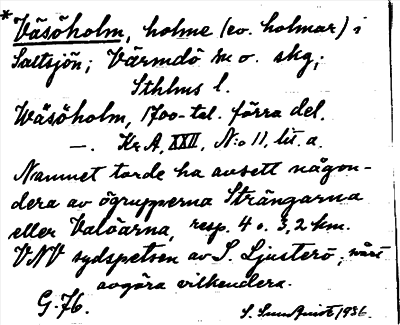 *Väsöholm, holme (ev. holmar) i
Saltsjön; Värmdö sn o. skg,
Sthlms l.
Wäsöholm, 1700-tal. förra del.
—. Kr.A, XXII, N:o 11, lit. a.
Namnet torde ha avsett någon-
dera av ögrupperna Strängarna
eller Valöarna, resp. 4 o. 3,2 km.
VNV sydspetsen av S. Ljusterö; svårt
avgöra vilkendera.
G.76.
1936.